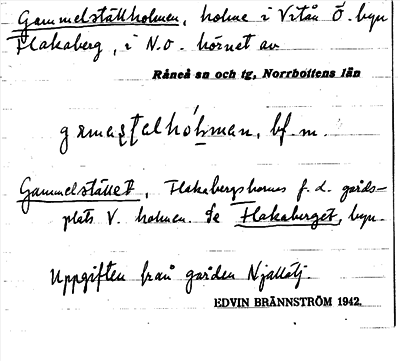 Gammelställholmen, holme i Vitån Ö. byn
Flakaberg, i N.O. hörnet av
Råneå sn och tg, Norrbottens län
bf. m.
Gammelstället, Flakabergsbornas f. d. gårds-
plats V. holmen. Se Flakaberget, byn.
Uppgiften från gården Njallåtj.
EDVIN BRÄNNSTRÖM 1942.